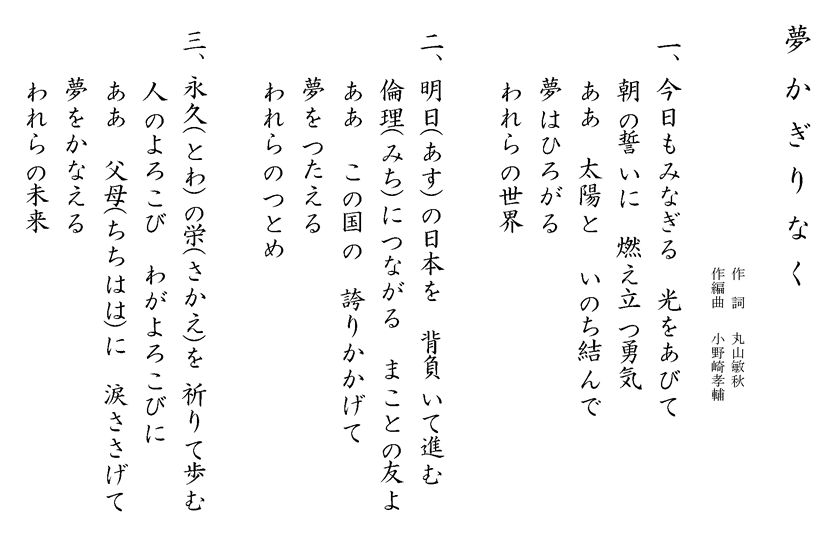 夢かぎりなく
作　詞　丸山敏秋
作編曲　小野崎孝輔
一、今日もみなぎる　光をあびて
朝の誓いに　燃え立つ勇気
ああ　太陽と　いのち結んで
夢はひろがる
われらの世界
二、明日(あす)の日本を　背負いて進む
倫理(みち)につながる　まことの友よ
ああ　この国の　誇りかかげて
夢をつたえる
われらのつとめ
三、永久(とわ)の栄(さかえ)を　祈りて歩む
人のよろこび　わがよろこびに
ああ　父母(ちちはは)に　涙ささげて
夢をかなえる
われらの未来